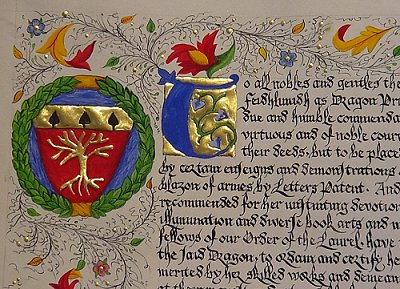 To all nobles and gentles the
as Dragon Pri
due and humble commenda
virtuous and of noble cour
their deeds, but to be place
by certain ensigns and demonstrations
blazon of armes by Letters Patent. And
recommended for her unstinting devotion
illumination and diverse book arts and
fellows of our Order of the Laurel, have
the said Dragon, to ordain and certify he
merited by her skilled works and demean